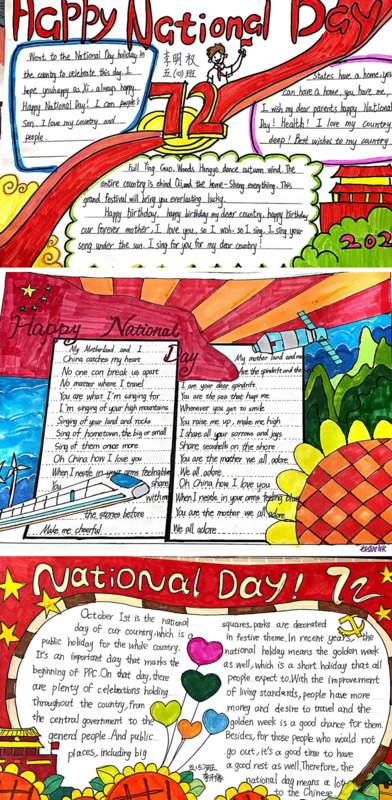 Happy National Day
Went to the National Day holiday in
the country to celebrate this day. I
hope you happy as Xi, always happy.
Happy National Day! I am people's
Son. I love my country and
people.
李明权
五(10)班
72
States have a home, you
can have a home, you have me,
I wish my dear parents happy National
Day! Health! I love my country
deep! Best wishes to my country.
Full Ying Guo. Woods Hongya dance autumn wind. The
entire country is chind Oil and the home-Shang everything. This
grand festival will bring you everlasting lucky.
Happy birthday. happy birthday my dear country, happy birthday
our forever mother, I love you, so I wish. so I sing. I sing your
song under the sun. I sing for you for my dear country!
202
Happy National
Day
My Motherland and I
China catches my heart
No one can break us apart
No matter where I travel
You are what I'm singing for
I'm singing of your high mountains
Singing of your land and rocks
Sing of hometown, the big or small
Sing of them once more
Oh China how I love you
When I nestle in your arms feeling
You share
with me
the stories before
Make me cheerful
My mother land and me
Are the spindrift and the
I am your dear spindrift
You are the sea that hugs me
Whenever you get to smile
You raise me up, make me high
I share all your sorrows and joys
Share seashells on the shore
You are the mother we all adore
We all adore
Oh China how I love you
When I nestle in your arms feeling
You are the mother we all adore
We all adore
National Day! 72
October 1st is the national
day of our country, which is a
public holiday for the whole country.
It's an important day that marks the
beginning of PPC. On that day, there
are plenty of celebrations holding
throughout the country, from
the central government to the
general people. And public
places, including big
squares, parks are decorated
in festive theme. In recent years, the
national holiday means the golden week
as well, which is a short holiday that all
people expect to. With the improvement
of living standards, people have more
money and desire to travel and the
golden week is a good chance for them.
Besides, for those people who would not
go out, it's a good time to have
a good rest as well. Therefore, the
national day means a lot
to the Chinese